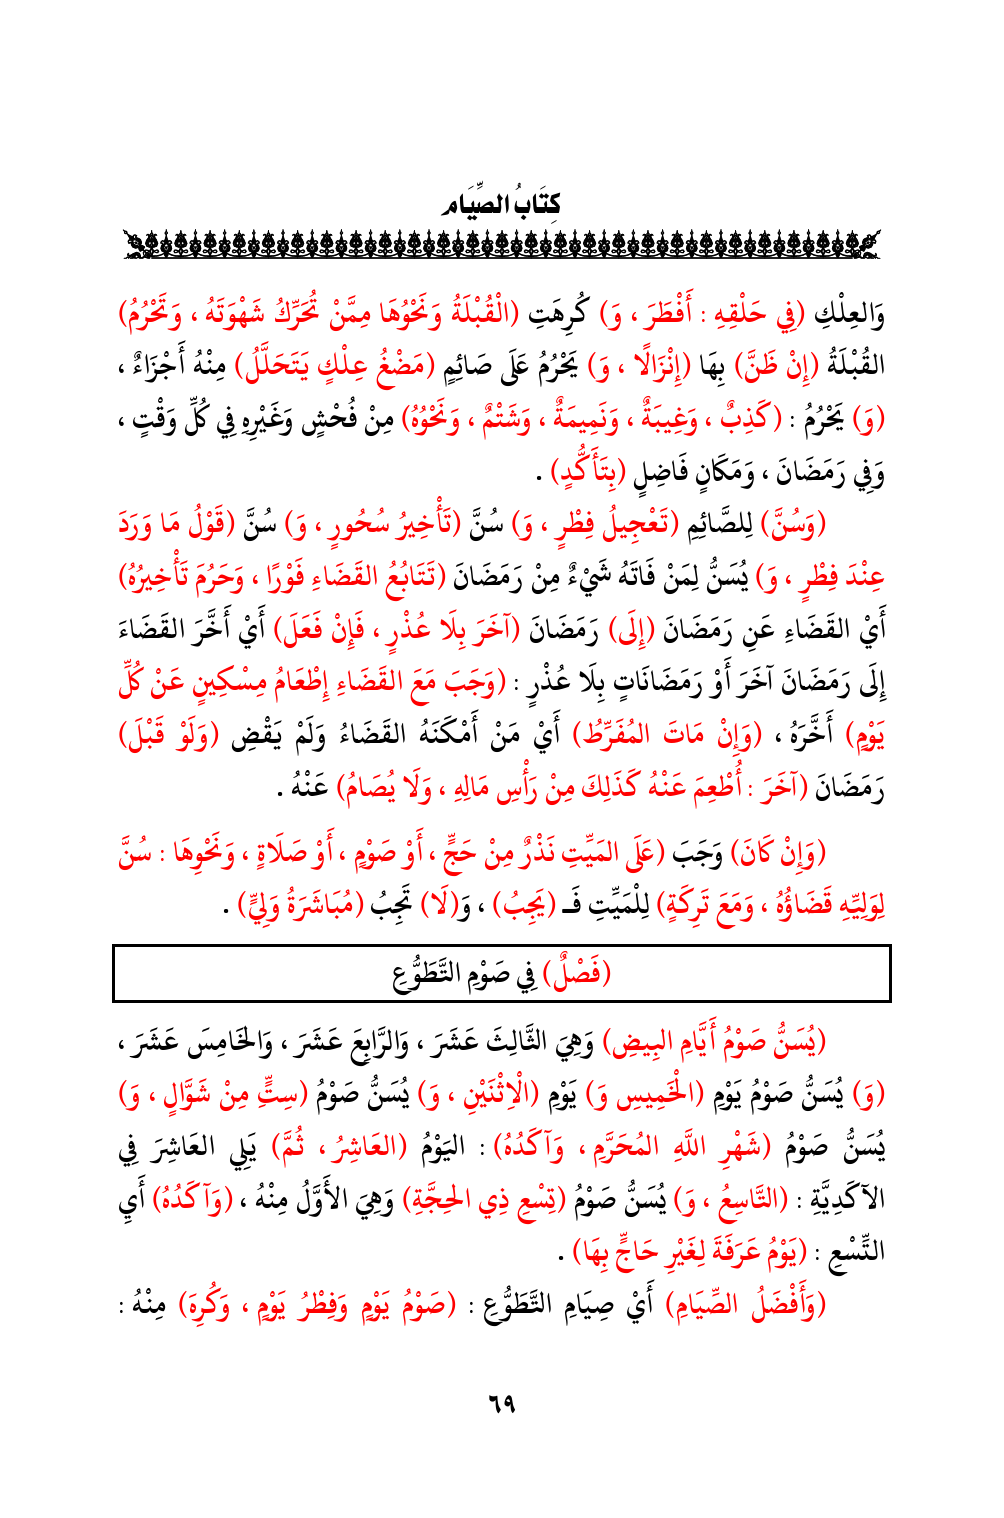 كِتَابُ الصِّيَام
وَالعِلْكِ (فِي حَلْقِهِ : أَفْطَرَ ، وَ) كُرِهَتِ (الْقُبْلَةُ وَنَحْوُهَا مِمَّنْ تُحَرِّكُ شَهْوَتَهُ ، وَتَحْرُمُ)
القُبْلَةُ (إِنْ ظَنَّ) بِهَا (إِنْزَالًا ، وَ) يَحْرُمُ عَلَى صَائِمٍ (مَضْغُ عِلْكٍ يَتَحَلَّلُ) مِنْهُ أَجْزَاءٌ ،
(وَ) يَحْرُمُ : (كَذِبٌ ، وَغِيبَةٌ ، وَنَمِيمَةٌ ، وَشَتْمٌ ، وَنَحْوُهُ) مِنْ فُحْشٍ وَغَيْرِهِ فِي كُلِّ وَقْتٍ ،
وَفِي رَمَضَانَ ، وَمَكَانٍ فَاضِلٍ (بِتَأَكُّدٍ) .
(وَسُنَّ) لِلصَّائِمِ (تَعْجِيلُ فِطْرٍ ، وَ) سُنَّ (تَأْخِيرُ سُحُورٍ ، وَ) سُنَّ (قَوْلُ مَا وَرَدَ
عِنْدَ فِطْرٍ ، وَ) يُسَنُّ لِمَنْ فَاتَهُ شَيْءٌ مِنْ رَمَضَانَ (تَتَابُعُ القَضَاءِ فَوْرًا ، وَحَرُمَ تَأْخِيرُهُ)
أَيْ القَضَاءِ عَنِ رَمَضَانَ (إِلَى) رَمَضَانَ (آخَرَ بِلَا عُذْرٍ ، فَإِنْ فَعَلَ) أَيْ أَخَّرَ القَضَاءَ
إِلَى رَمَضَانَ آخَرَ أَوْ رَمَضَانَاتٍ بِلَا عُذْرٍ : (وَجَبَ مَعَ القَضَاءِ إِطْعَامُ مِسْكِينٍ عَنْ كُلِّ
يَوْمٍ) أَخَّرَهُ ، (وَإِنْ مَاتَ المُفَرِّطُ) أَيْ مَنْ أَمْكَنَهُ القَضَاءُ وَلَمْ يَقْضِ (وَلَوْ قَبْلَ)
رَمَضَانَ (آخَرَ : أُطْعِمَ عَنْهُ كَذَلِكَ مِنْ رَأْسِ مَالِهِ ، وَلَا يُصَامُ) عَنْهُ .
(وَإِنْ كَانَ) وَجَبَ (عَلَى المَيِّتِ نَذْرٌ مِنْ حَجٍّ ، أَوْ صَوْمٍ ، أَوْ صَلَاةٍ ، وَنَحْوِهَا : سُنَّ
لِوَلِيِّهِ قَضَاؤُهُ ، وَمَعَ تَرِكَةٍ) لِلْمَيِّتِ فَـ (يَجِبُ) ، وَ(لَا) تَجِبُ (مُبَاشَرَةُ وَلِيٍّ) .
(فَصْلٌ) فِي صَوْمِ التَّطَوُّعِ
(يُسَنُّ صَوْمُ أَيَّامِ البِيضِ) وَهِيَ الثَّالِثَ عَشَرَ ، وَالرَّابِعَ عَشَرَ ، وَالخَامِسَ عَشَرَ ،
(وَ) يُسَنُّ صَوْمُ يَوْمِ (الْخَمِيسِ وَ) يَوْمِ (الْاِثْنَيْنِ ، وَ) يُسَنُّ صَوْمُ (سِتٍّ مِنْ شَوَّالٍ ، وَ)
يُسَنُّ صَوْمُ (شَهْرِ اللَّهِ المُحَرَّمِ ، وَآكَدُهُ) : اليَوْمُ (العَاشِرُ ، ثُمَّ) يَلِي العَاشِرَ فِي
الآكَدِيَّةِ : (التَّاسِعُ ، وَ) يُسَنُّ صَوْمُ (تِسْعِ ذِي الحِجَّةِ) وَهِيَ الأَوَّلُ مِنْهُ ، (وَآكَدُهُ) أَيِ
التِّسْعِ : (يَوْمُ عَرَفَةَ لِغَيْرِ حَاجٍّ بِهَا) .
(وَأَفْضَلُ الصِّيَامِ) أَيْ صِيَامِ التَّطَوُّعِ : (صَوْمُ يَوْمٍ وَفِطْرُ يَوْمٍ ، وَكُرِهَ) مِنْهُ :
٦٩